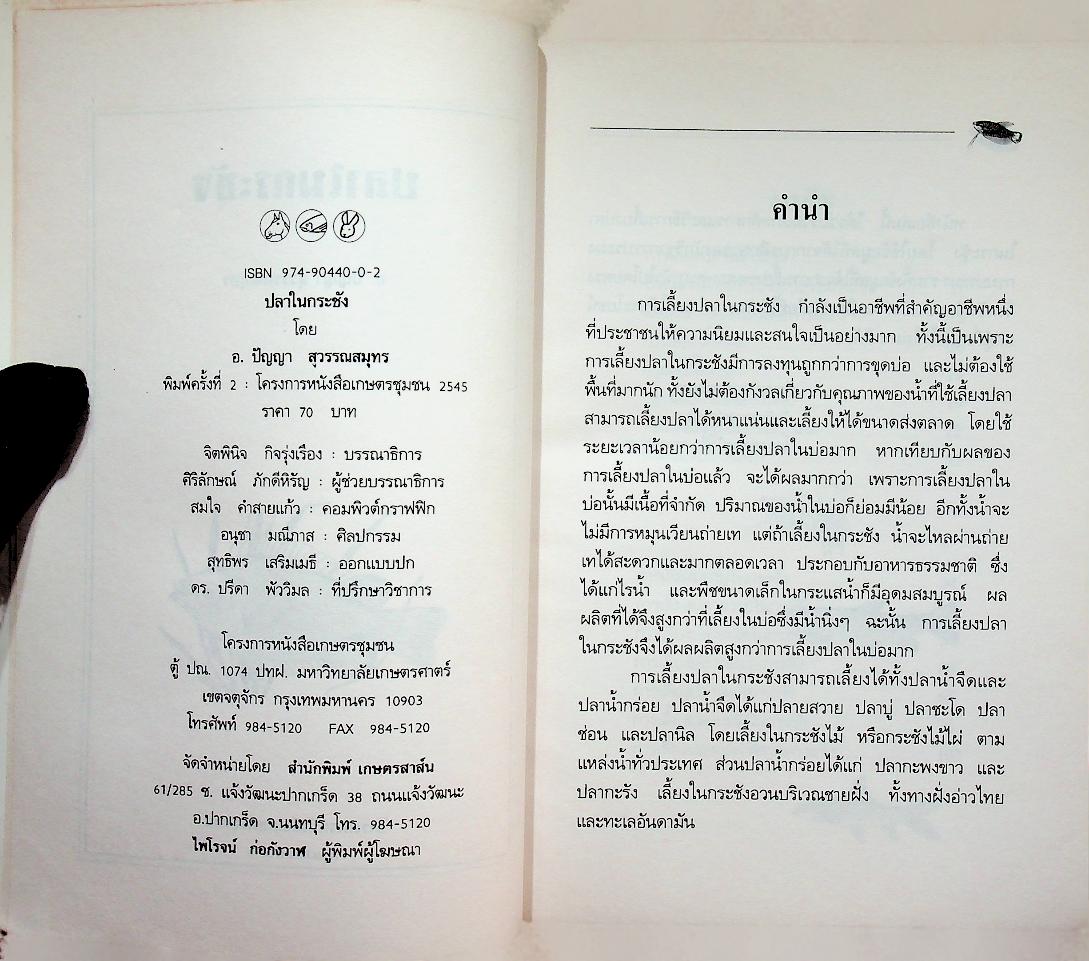 ISBN 974-90440-0-2
ปลาในกระชัง
โดย
อ. ปัญญา สุวรรณสมุทร
พิมพ์ครั้งที่ 2 : โครงการหนังสือเกษตรชุมชน 2545
ราคา 70 บาท
จิตพินิจ กิจรุ่งเรือง : บรรณาธิการ
ศิริลักษณ์ ภักดีหิรัญ : ผู้ช่วยบรรณาธิการ
สมใจ คำสายแก้ว : คอมพิวต์กราฟฟิก
อนุชา มณีภาส : ศิลปกรรม
สุทธิพร เสริมเมธี : ออกแบบปก
ดร. ปรีดา พัววิมล : ที่ปรึกษาวิชาการ
โครงการหนังสือเกษตรชุมชน
ตู้ ปณ. 1074 ปทฝ. มหาวิทยาลัยเกษตรศาตร์
เขตจตุจักร กรุงเทพมหานคร 10903
โทรศัพท์ 984-5120 FAX 984-5120
จัดจำหน่ายโดย สำนักพิมพ์ เกษตรสาส์น
61/285 ซ. แจ้งวัฒนะปากเกร็ด 38 ถนนแจ้งวัฒนะ
อ.ปากเกร็ด จ.นนทบุรี โทร. 984-5120
ไพโรจน์ ก่อกังวาฬ ผู้พิมพ์ผู้โฆษณา
คำนำ
การเลี้ยงปลาในกระชัง กำลังเป็นอาชีพที่สำคัญอาชีพหนึ่ง
ที่ประชาชนให้ความนิยมและสนใจเป็นอย่างมาก ทั้งนี้เป็นเพราะ
การเลี้ยงปลาในกระชังมีการลงทุนถูกกว่าการขุดบ่อ และไม่ต้องใช้
พื้นที่มากนัก ทั้งยังไม่ต้องกังวลเกี่ยวกับคุณภาพของน้ำที่ใช้เลี้ยงปลา
สามารถเลี้ยงปลาได้หนาแน่นและเลี้ยงให้ได้ขนาดส่งตลาด โดยใช้
ระยะเวลาน้อยกว่าการเลี้ยงปลาในบ่อมาก หากเทียบกับผลของ
การเลี้ยงปลาในบ่อแล้ว จะได้ผลมากกว่า เพราะการเลี้ยงปลาใน
บ่อนั้นมีเนื้อที่จำกัด ปริมาณของน้ำในบ่อก็ย่อมมีน้อย อีกทั้งน้ำจะ
ไม่มีการหมุนเวียนถ่ายเท แต่ถ้าเลี้ยงในกระชัง น้ำจะไหลผ่านถ่าย
เทได้สะดวกและมากตลอดเวลา ประกอบกับอาหารธรรมชาติ ซึ่ง
ได้แก่ไรน้ำ และพืชขนาดเล็กในกระแสน้ำก็มีอุดมสมบูรณ์ ผล
ผลิตที่ได้จึงสูงกว่าที่เลี้ยงในบ่อซึ่งมีน้ำนิ่งๆ ฉะนั้น การเลี้ยงปลา
ในกระชังจึงได้ผลผลิตสูงกว่าการเลี้ยงปลาในบ่อมาก
การเลี้ยงปลาในกระชังสามารถเลี้ยงได้ทั้งปลาน้ำจืดและ
ปลาน้ำกร่อย ปลาน้ำจืดได้แก่ปลายสวาย ปลาบู่ ปลาชะโด ปลา
ช่อน และปลานิล โดยเลี้ยงในกระชังไม้ หรือกระชังไม้ไผ่ ตาม
แหล่งน้ำทั่วประเทศ ส่วนปลาน้ำกร่อยได้แก่ ปลากะพงขาว และ
ปลากะรัง เลี้ยงในกระชังอวนบริเวณชายฝั่ง ทั้งทางฝั่งอ่าวไทย
และทะเลอันดามัน